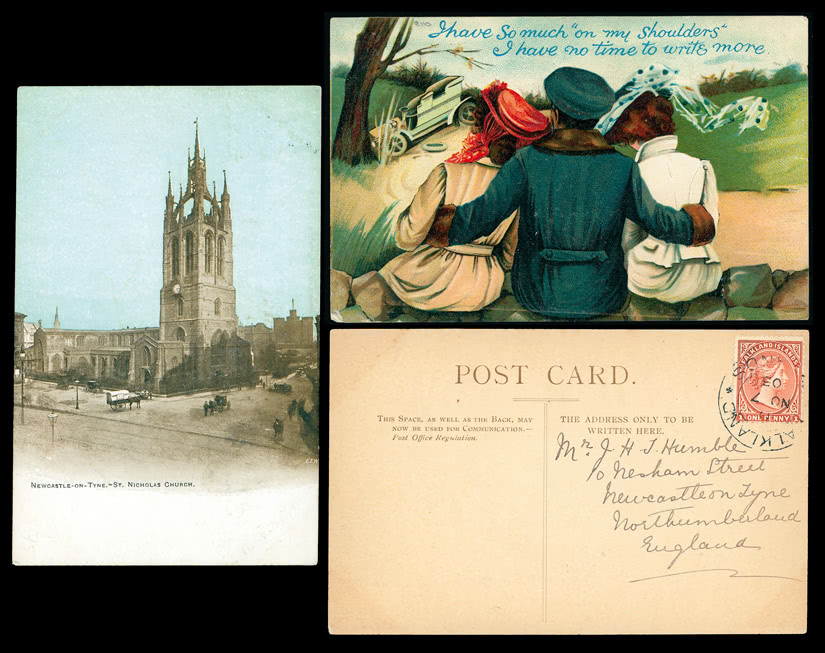 I have so much "on my shoulders"
I have no time to write more.
NEWCASTLE-ON-TYNE.~ST. NICHOLAS CHURCH.
E.T.W
POST CARD.
THIS SPACE, AS WELL AS THE BACK, MAY
NOW BE USED FOR COMMUNICATION.—
Post Office Regulation.
THE ADDRESS ONLY TO BE
WRITTEN HERE.
Mr J. H. J. Humble
Nesham Street
Newcastle on Tyne
Northumberland
England
FALKLAND ISLANDS
ONE PENNY
FALKLAND
NO 7